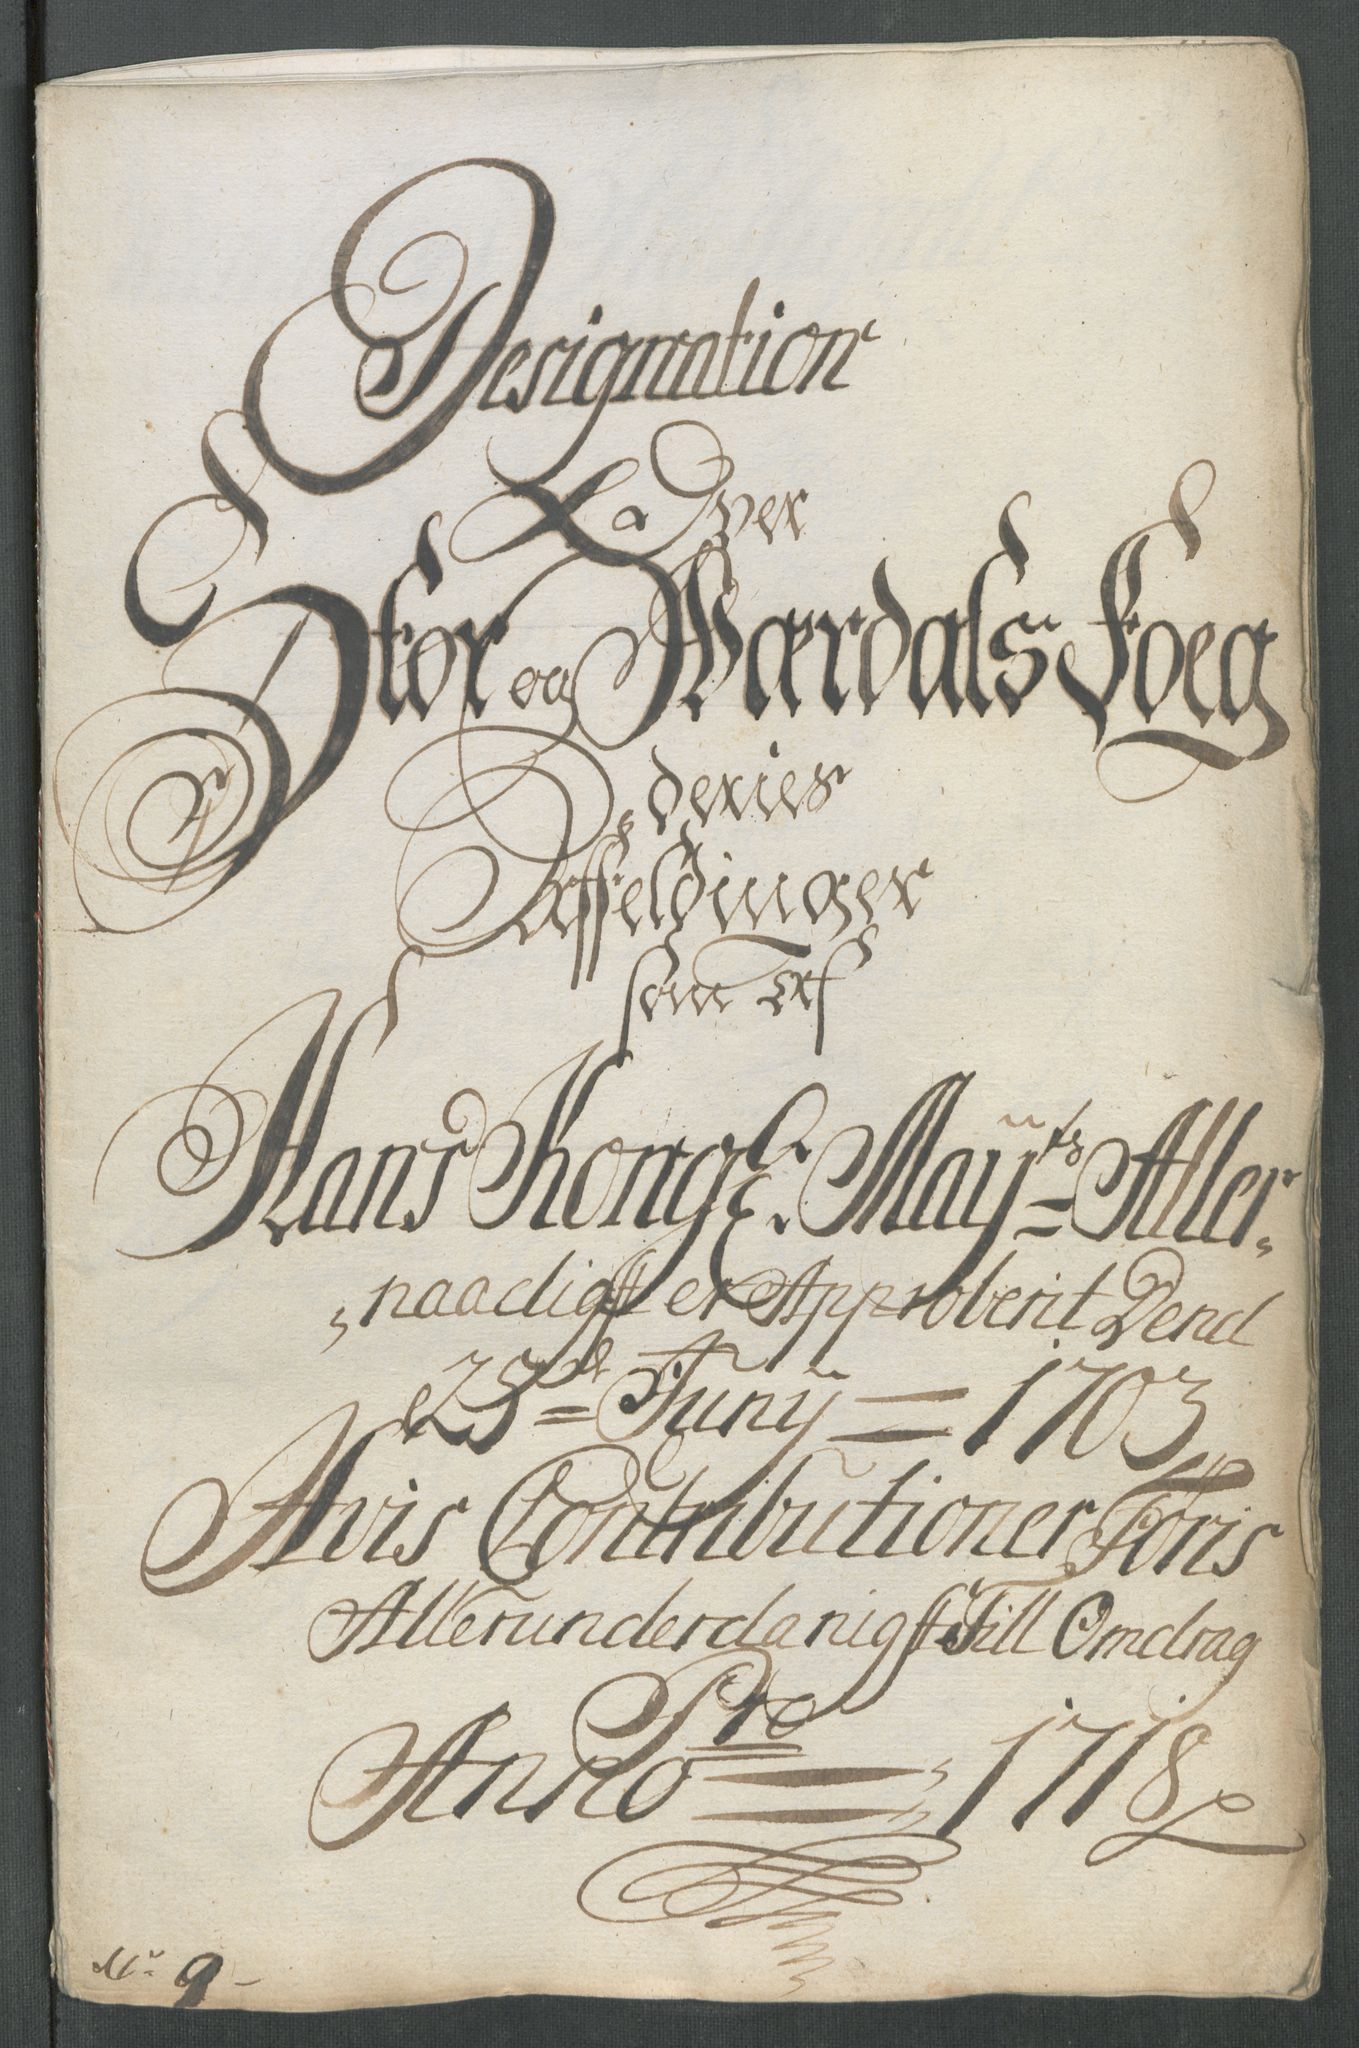 Designation
Over
Stør og Wærdals Foeg
deries
Affældinger
som Erf
Hans Kongl. Mayts Aller,
naadigst er Approberit Dend
23de Junÿ 1703
Hvis Contributioner Foris
Allerunderdanigst Till Omdrag
Pro
Anno 1718
No 9